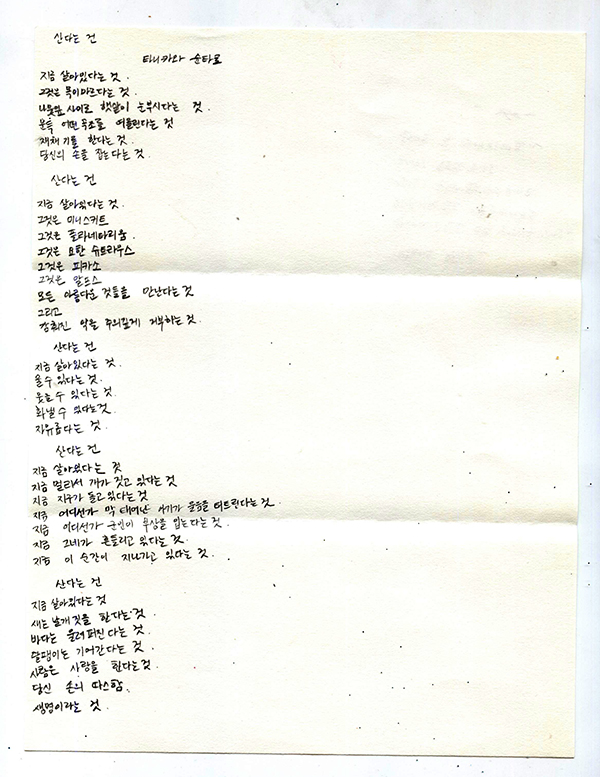 산다는 건
타니카와 슌타로
지금 살아있다는 것.
그것은 목이마르다는 것.
나뭇잎 사이로 햇살이 눈부시다는 것.
문득 어떤 곡조를 떠올린다는 것
재채기를 한다는 것.
당신의 손을 잡는다는 것.
산다는 건
지금 살아있다는 것.
그것은 미니스커트
그것은 플라네타리움.
그것은 요한 슈트라우스
그것은 피카소
그것은 알프스
모든 아름다운 것들을 만난다는 것
그리고
감춰진 악을 주의깊게 거부하는 것.
산다는 건
지금 살아있다는 것.
울 수 있다는 것.
웃을 수 있다는 것.
화낼 수 있다는 것
자유롭다는 것.
산다는 건
지금 살아있다는 것
지금 멀리서 개가 짖고 있다는 것
지금 지구가 돌고 있다는 것
지금 어디선가 막 태어난 아기가 울음을 터드린다는 것.
지금 어디선가 군인이 부상을 입는다는 것.
지금 그네가 흔들리고 있다는 것.
지금 이 순간이 지나가고 있다는 것.
산다는 건
지금 살아있다는 것
새는 날개짓을 한다는 것.
바다는 울려퍼진다는 것.
달팽이는 기어간다는 것.
사람은 사랑을 한다는 것.
당신 손의 따스함.
생명이라는 것.